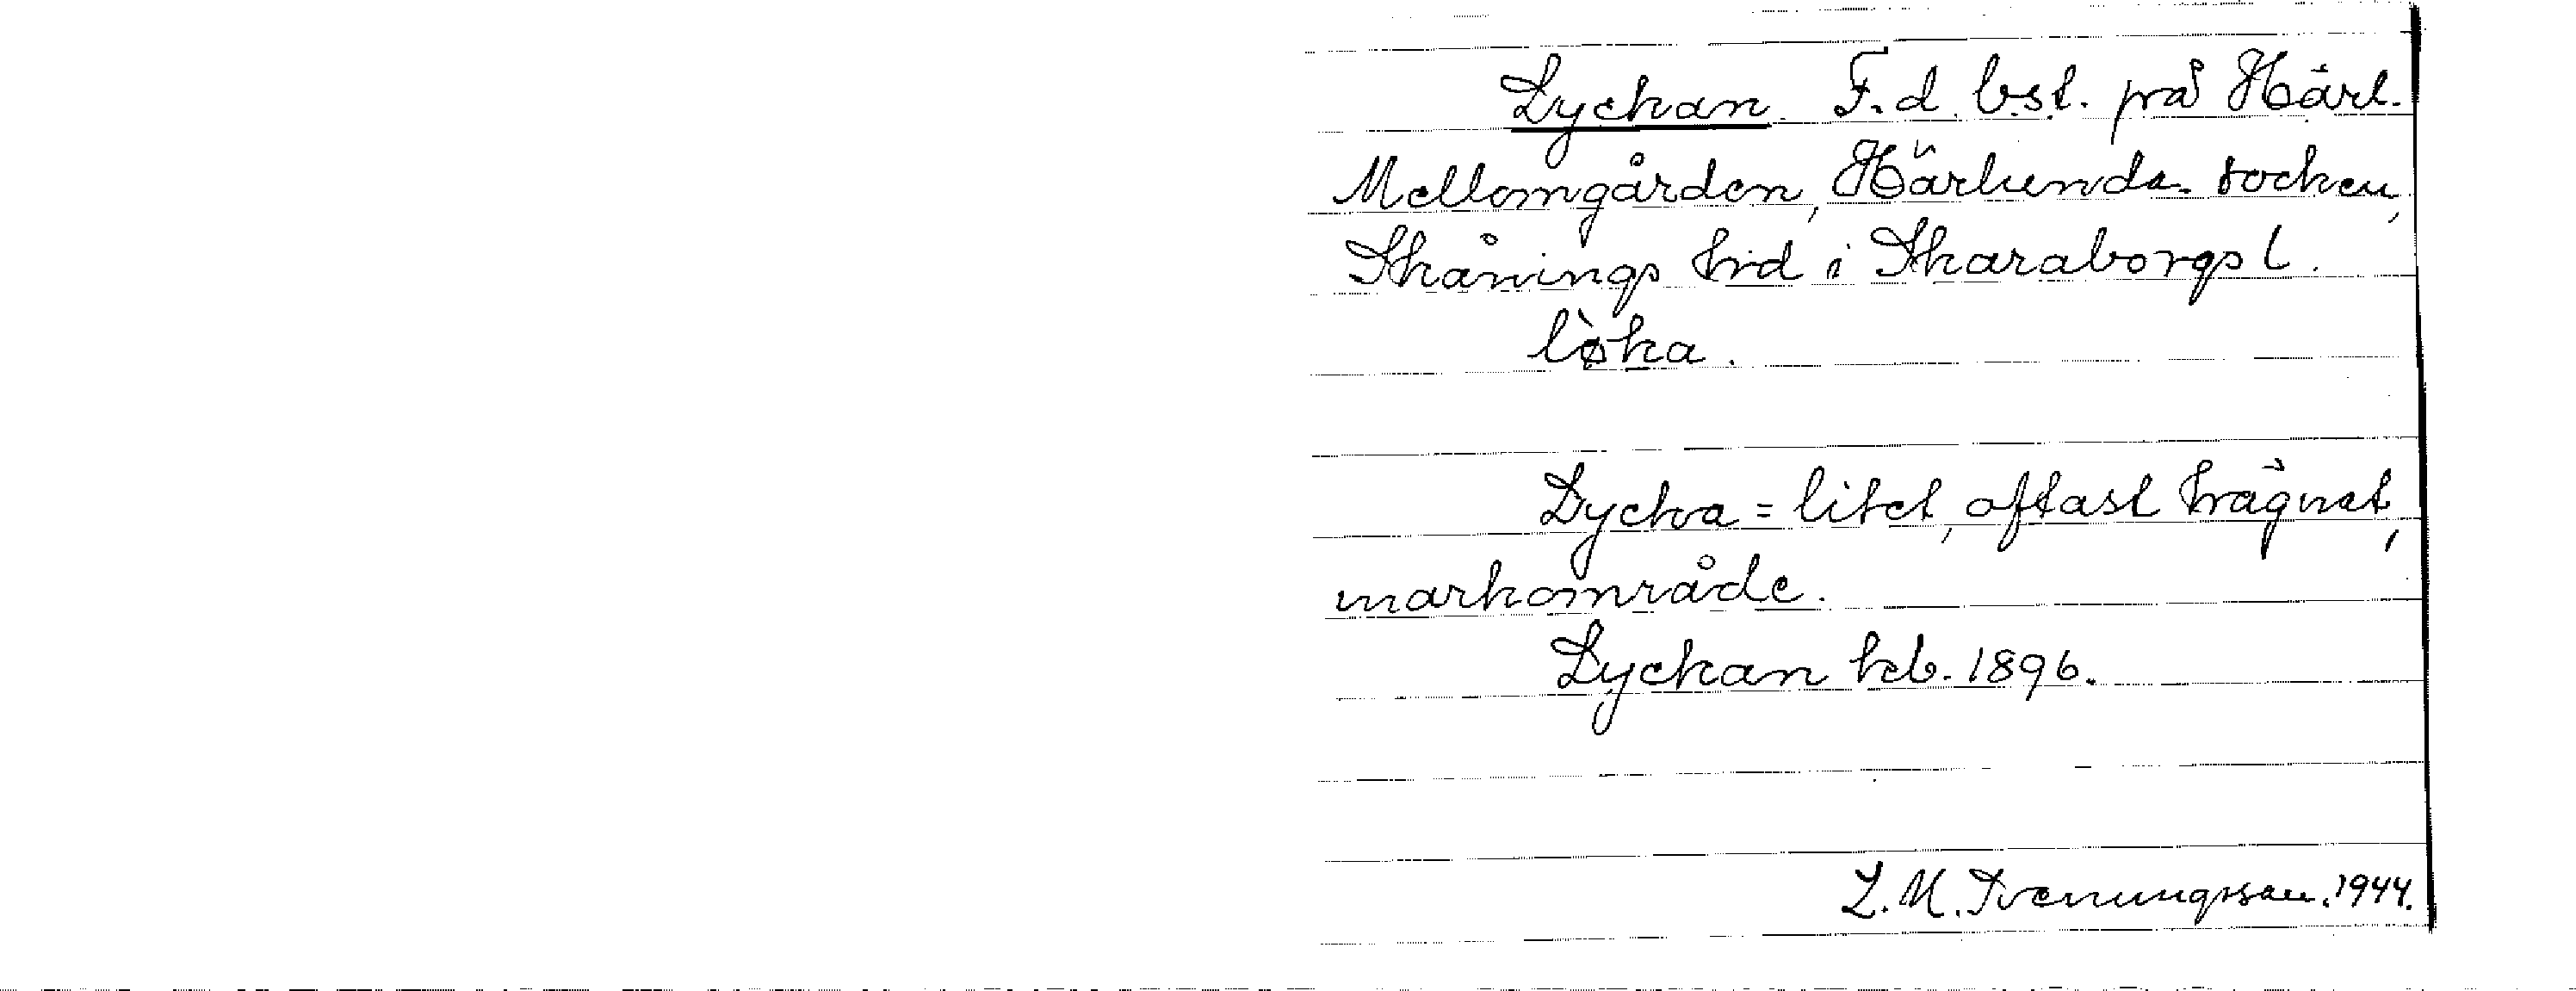 Lyckan. F.d. bst. på Härl.
Mellomgården, Härlunda socken,
Skånings hrd i Skaraborgs l.
lø̀ka.
Lycka = litet, oftast hägnat,
markområde.
Lyckan hcb. 1896.
L. M. Svenungsson. 1944.